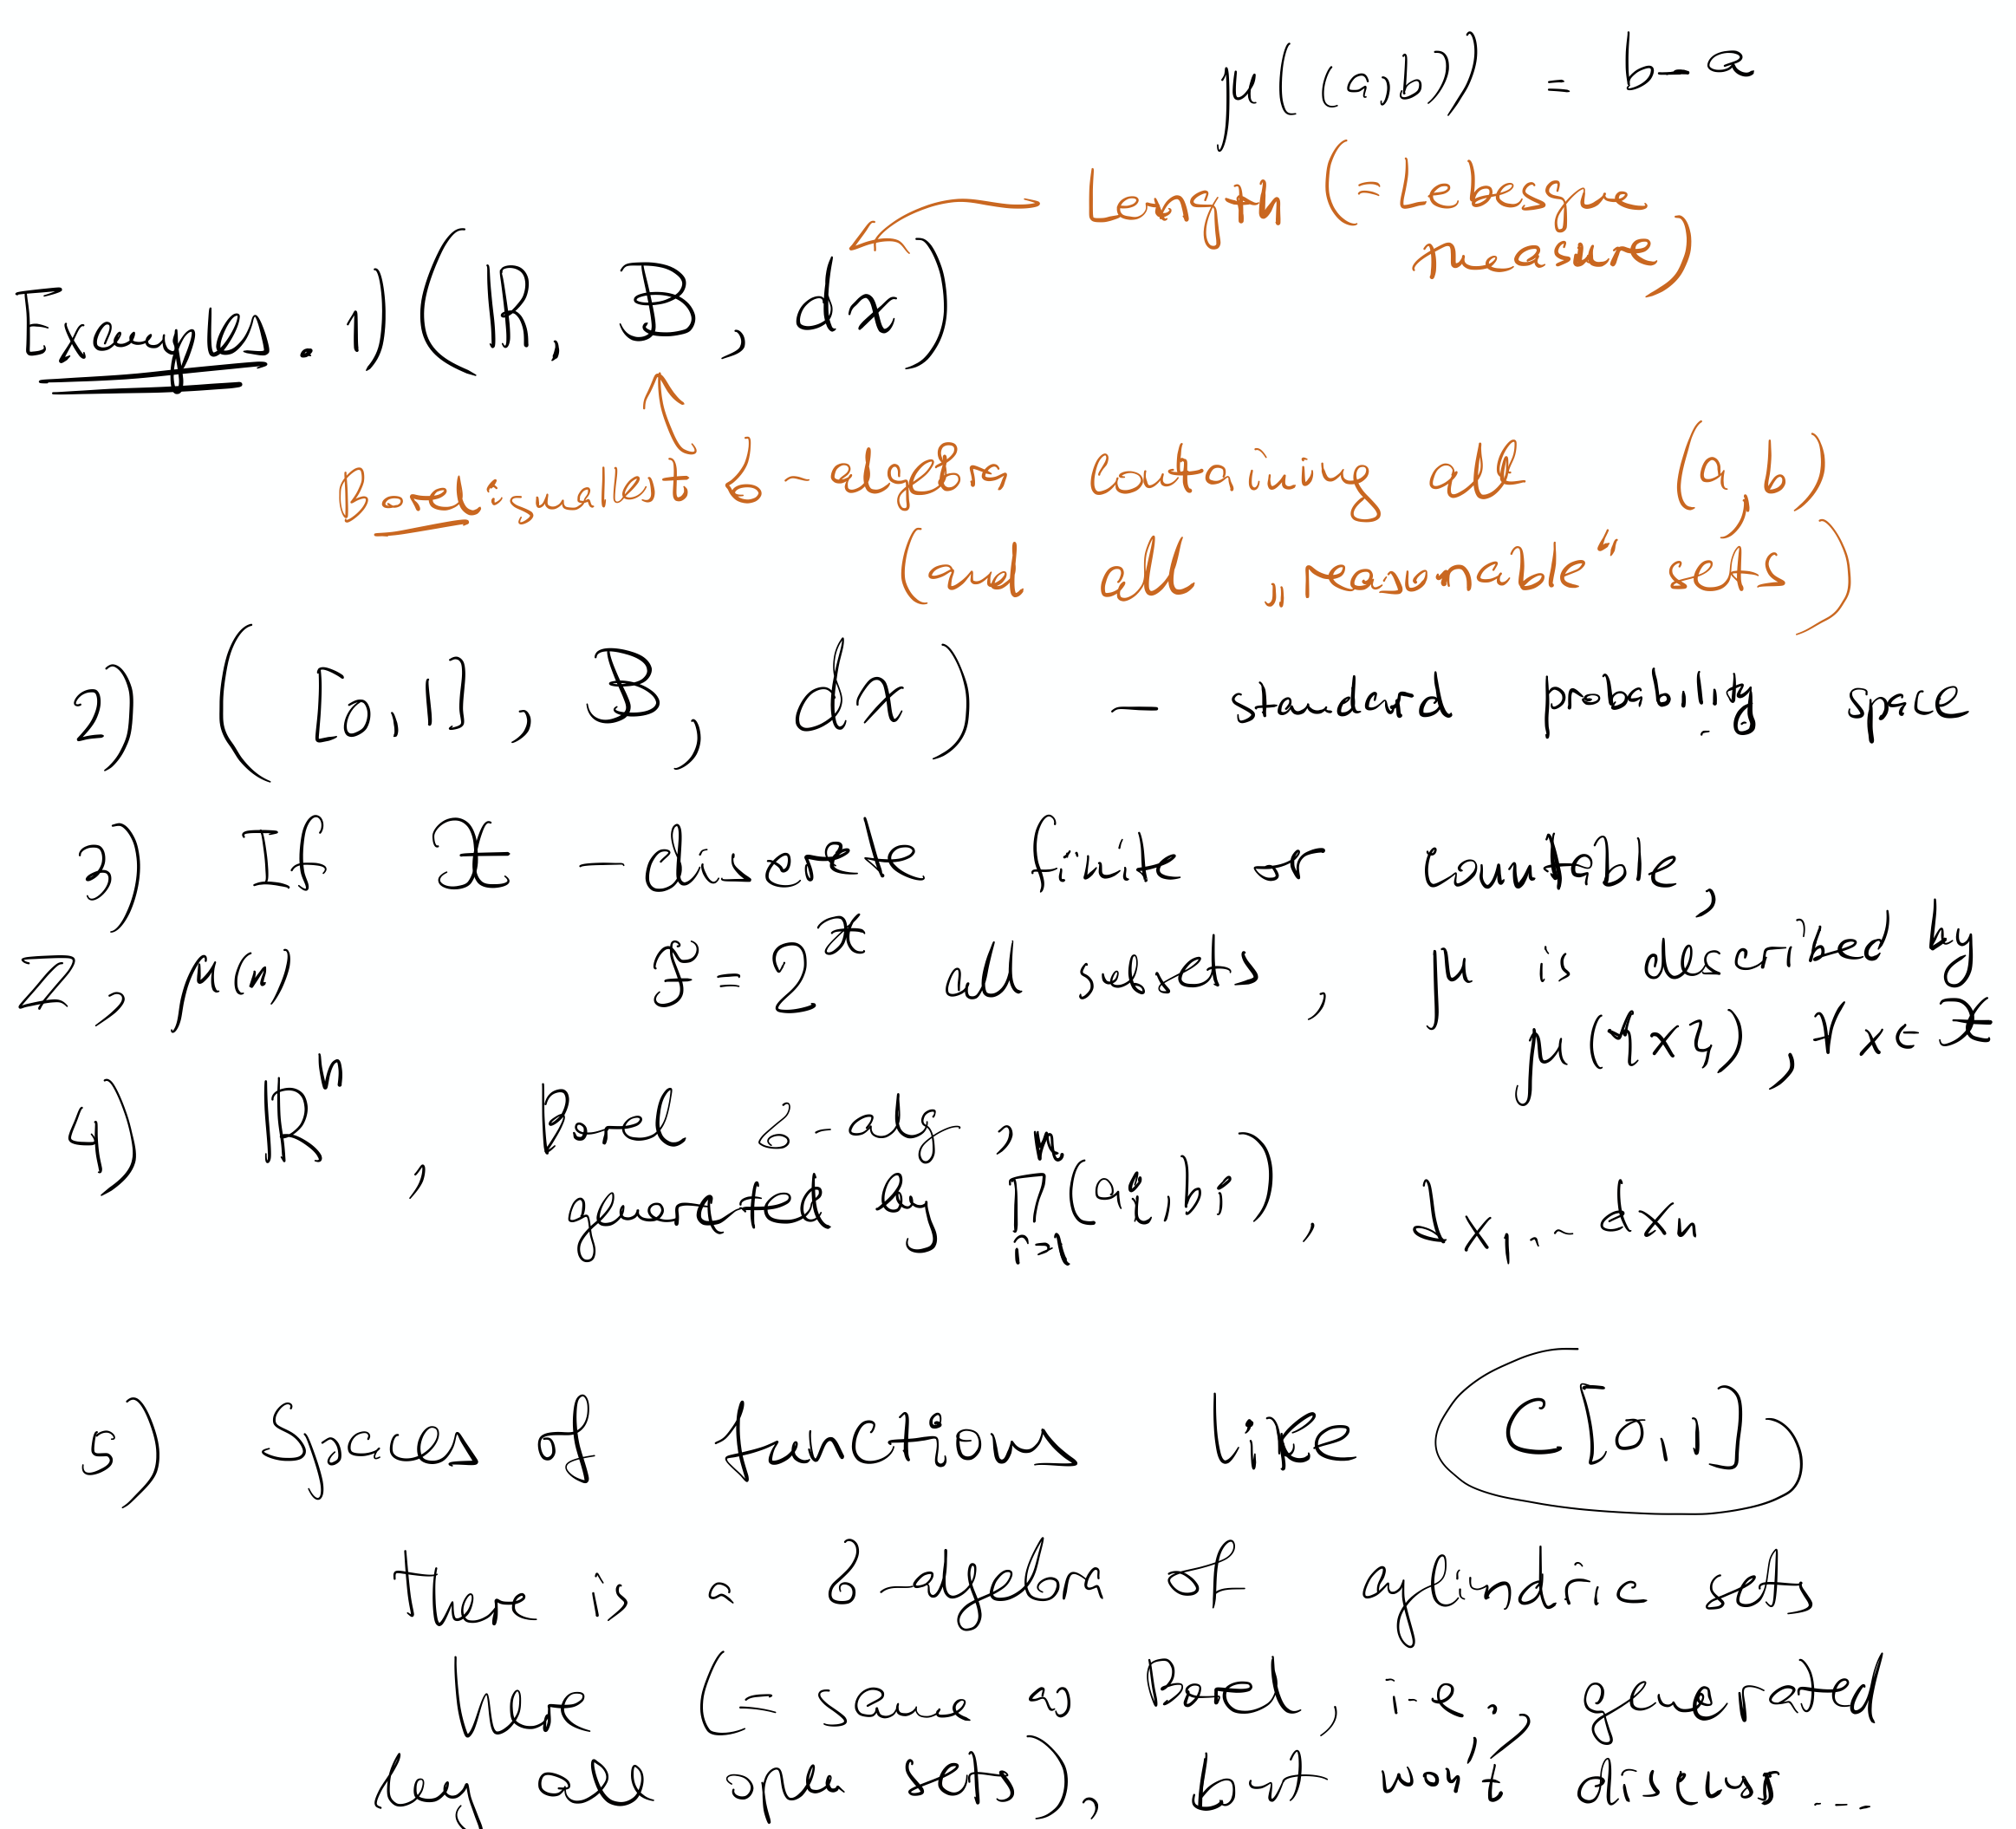 μ((a,b)) = b-a
Length (=Lebesgue
measure)
Examples. 1) (ℝ, B, dx)
Borel: smallest σ-algebra containing all (a,b)
(and all „reasonable“ sets)
2) ([0,1], B, dx) — standard probability space
3) If 𝒳 - discrete finite or countable,
ℤ, μ(n) ℱ = 2^𝒳 all subsets, μ is described by
μ({x}), ∀x∈𝒳
4) ℝⁿ, Borel σ-alg,
generated by ∏_{i=1}^{n} (a_i, b_i), dx₁...dxₙ
5) Spaces of functions like C[0,1]
there is a σ-algebra of cylindric sets
here (= same as Borel, i.e., generated
by all open sets), but won't discuss...